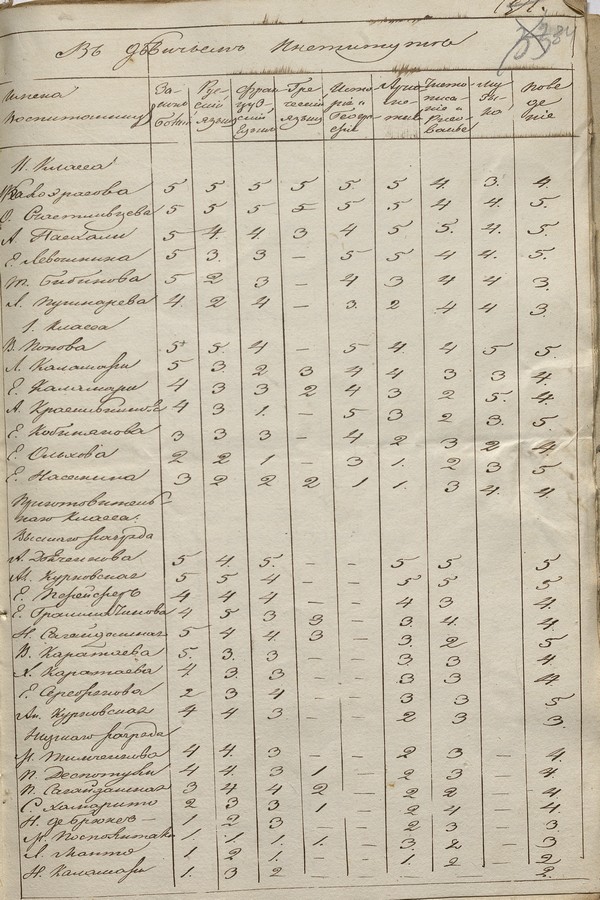 Въ дѣвичьемъ Институтѣ
Имена Воспитанницъ | Законъ Божій | Русскій языкъ | Французскій языкъ | Греческій языкъ | Исторія и Географія | Арифметика | Чистописаніе и Рисованіе | Музыка | Поведеніе
II. Класса
5 5 5 5 5. 5 4. 3. 4.
О. Счастливцева 5 5 5 5 5 5 4 4. 5.
А. Пасхали 5 4. 4. 3 4 5 5. 4. 5.
Е. Левошкина 5 3. 3 – 5 5 4 4. 5.
5 2 3 – 4 3 4 4 3
Л. Пушкарева 4. 2 4 – 3. 2 4 4 3
I. Класса
В. Попова 5+ 5. 4 – 5 4. 4 5 5.
Л. Каламари 5 3 2 3 4 4 3 3 4.
Е. Каламари 4 3 3 2 4 3 2 5. 4.
А. Красильникова 4 3 1. – 5 3 2 3. 5.
Е. 3 3 3 – 4 2 3 2 4
Е. Ольхова 2 2 1 – 3 1. 2 3 5
Е. Насонкина 3 2 2 2 1 1. 3 4. 4.
Приготовитель-
наго Класса.
Высшаго разряда
5 4. 5. – – 5 5 5
Ал. Курновская 5 5 4 – – 5 5 5
Е. 4 4 4 – – 4 3 4.
Е. 4 5 3 3 – 3. 4. 4.
Н. Сагайдашная 5 4 4. 3 – 3. 2 5
В. Каратаева 5. 3. 3 – – 3 3 4
Каратаева 4. 3 3 – – 3 3 4
Е. 2 3 4 – – 3 3 5
Ан. Курновская 4 4 3 – – 2 3 3.
Низшаго разряда
Тимченкова 4 4. 3 – – 2 3 – 4.
П. Деспотули 4 4. 3 1 – 2 3 – 4.
П. Сагайдашная 3 4 4 2 – 2 2 – 4
С. Хапарито 2 3 3 1 – 2 4 – 4
Н. 1 2 3 – – 2 3 – 3.
Посполитаки 1. 1. 1. 1. – 3. 2 – 3
Л. Манто 1. 2 1. – – 1. 2 – 2
Н. Каламари 1. 3 2 – 2.